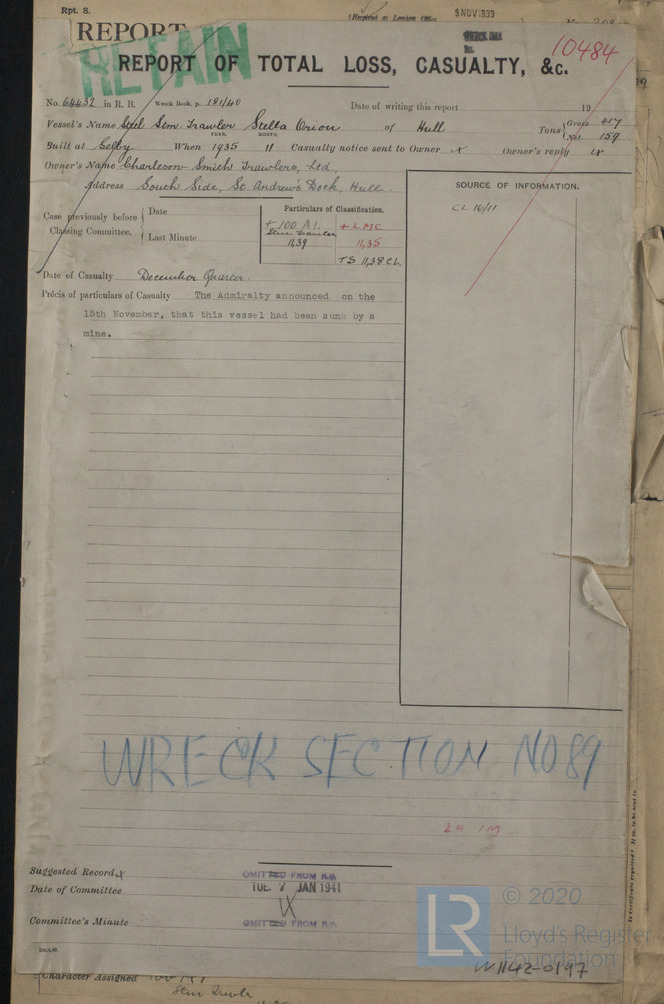 Rpt. 8.
(Received at London Office
9 NOV 1939
REPORT
RETAIN
WRECK
10484
REPORT OF TOTAL LOSS, CASUALTY, &c.
No. 64432 in R. B. Wreck Book, p. 181/40 Date of writing this report 19
Vessel's Name Steel Stm. Trawler Stella Orion of Hull Tons { Gross 417
Net 159
YEAR. MONTH.
Built at Selby When 1935 11 Casualty notice sent to Owner Owner's reply
Owner's Name Charleson-Smith Trawlers, Ltd.,
Address South Side, St. Andrew's Dock, Hull.
SOURCE OF INFORMATION.
CL 16/11
Case previously before Classing Committee. { Date
Last Minute
Particulars of Classification.
+ 100 A1. + LMC
Stm Trawler
11,39 11,35
TS 11,38 CL
Date of Casualty December Quarter.
Précis of particulars of Casualty The Admiralty announced on the
15th November, that this vessel had been sunk by a
mine.
WRECK SECTION NO 89
Suggested Record
OMITTED FROM R.B.
Date of Committee TUE 7 JAN 1941
Committee's Minute OMITTED FROM R.B.
LR
© 2020
Lloyd's Register
Foundation
W1142-0197
Character Assigned